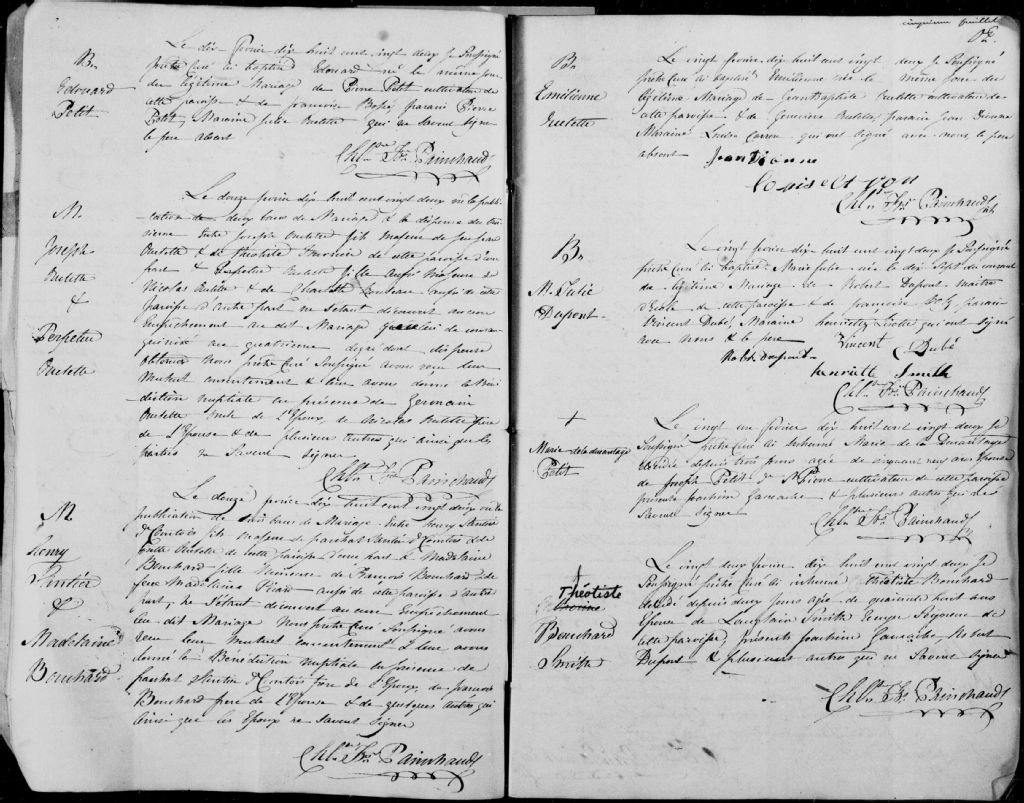 B.
Edouard
Petit
Le dix fevrier dix huit cent vingt deux je Soussigné
prêtre Curé ai baptisé Edouard né le même jour
du légitime Mariage de Pierre Petit cultivateur de
cette paroisse & de francoise parain Pierre
Petit, Maraine Julie Ouelette qui ne savent signer
le pere absent
Chls. Frs. Painchaud
M.
Joseph
Ouelette
&
Perpetue
Ouelette
Le douze fevrier dix huit cent vingt deux vu la publi-
cation de deux bans de Mariage & la dispense du troi-
sieme entre Joseph Ouelette fils majeur de
Ouelette & de théotiste de cette paroisse d'une
part & Perpetue Ouelette fille aussi Majeure de
Nicolas Ouelette & de Charlotte aussi de cette
paroisse d'autre part ne s'etant decouvert aucun
empêchement au dit Mariage que celui de consan-
guinité au quatrieme degré dont dispense
obtenue Nous prêtre Curé Soussigné avons recu leur
Mutuel consentement & leur avons donné la Béné-
diction nuptiale en présence de Germain
Ouelette de l'Epoux, de Nicolas Ouelette père
de l'Epouse & de plusieurs autres qui ainsi que les
parties ne savent signer
Chls. Frs. Painchaud
M
henry
Santiér
&
Madelaine
Bouchard
Le douze fevrier dix huit cent vingt deux vu la
publication de trois bans de Mariage entre henry
fils majeur de paschal &de
Ouelette de cette paroisse d'une part & Madelaine
Bouchard fille Mineure de francois Bouchard &de
feue Madelaine Picard aussi de cette paroisse d'autre
part, ne s'étant découvert aucun Empêchement
au dit Mariage Nous prêtre Curé Soussigné avons
recu leur Mutuel consentement & leur avons
donné la Bénédiction nuptiale en présence de
paschal frere de l'Epoux, de francois
Bouchard frere de l'Epouse & de quelques autres qui
ainsi que les Epoux ne savent signer
Chls. Frs. Painchaud
cinquieme feuillet
B.
Emilienne
Ouelette
Le vingt fevrier dix huit cent vingt deux je Soussigné
prêtre Curé ai baptisé Emilienne née le même jour du
légitime Mariage de Jean Baptiste Ouelette cultivateur de
cette paroisse & de Genevieve Ouelette, parain Jean Dionne
Maraine qui ont signé avec nous, le pere
absent
Jean Dionne
Chls. Frs. Painchaud
B.
M. Julie
Dupont
Le vingt fevrier dix huit cent vingt deux je Soussigné
prêtre Curé ai baptisé Marie Julie née le dix sept du courant
du légitime Mariage de Robert Dupont maitre
d'école de cette paroisse & de francoise parain
Vincent Dubé, Maraine qui ont signé
avec nous & le pere
Vincent Dubé
Robt. Dupont
henriette Smith
Chls. Frs. Painchaud
+
Marie de la durantaye
Petit
Le vingt un fevrier dix huit cent vingt deux je
Soussigné prêtre Curé ai inhumé Marie de la Durantaye
décédée depuis trois jours agée de cinquante neuf ans Epouse
de Joseph Petit de St Pierre cultivateur de cette paroisse
présents Joachim & plusieurs autres qui ne
savent signer
Chls. Frs. Painchaud
+
Théotiste
Bouchard
Smith
Le vingt deux fevrier dix huit cent vingt deux je
Soussigné prêtre Curé ai inhumé théotiste Bouchard
décédée depuis deux jours agée de quarante huit ans
Epouse de Smith de
cette paroisse, présents Joachim Robert
Dupont & plusieurs autres qui ne savent signer
Chls. Frs. Painchaud